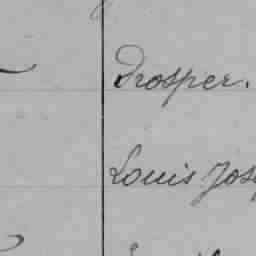 Prosper.
Louis Jos